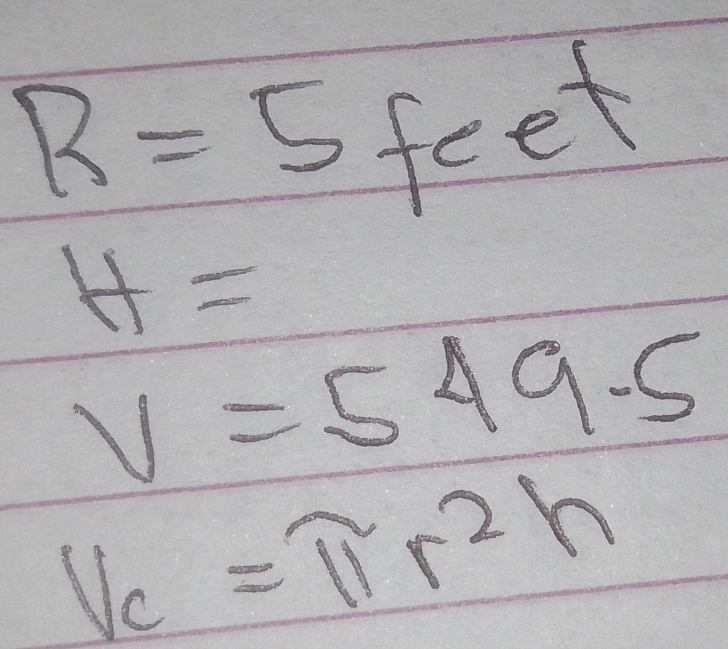 R = 5 feet
H =
V = 549.5
Vc = πr²h